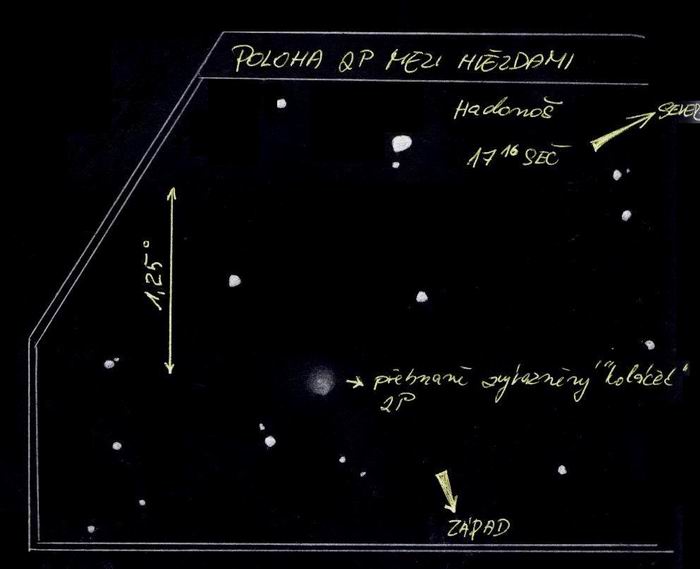 POLOHA 2P MEZI HVĚZDAMI
Hadonoš
SEVER
17 16 SEČ
1,25°
přehnaně zvýrazněný "koláček"
2P
ZÁPAD